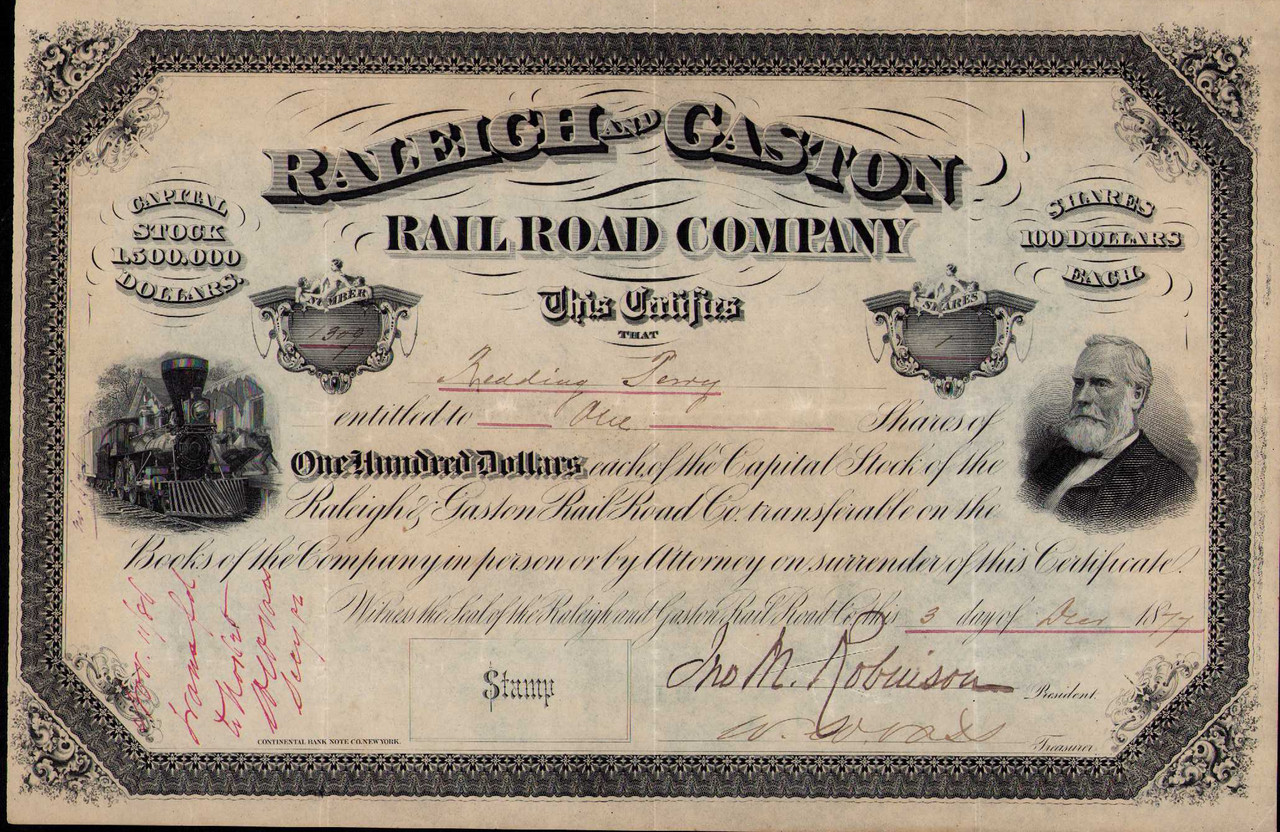 RALEIGH AND GASTON
RAIL ROAD COMPANY
CAPITAL
STOCK
1,500,000
DOLLARS.
SHARES
100 DOLLARS
EACH
NUMBER
1309
SHARES
1
This Certifies
THAT
Redding Perry
entitled to One Shares of
One Hundred Dollars each of the Capital Stock of the
Raleigh & Gaston Rail Road Co. transferable on the
Books of the Company in person or by Attorney on surrender of this Certificate.
Witness the Seal of the Raleigh and Gaston Rail Road Co. this 3 day of Decr 1877
Jno M. Robinson President.
Treasurer.
Stamp
CONTINENTAL BANK NOTE CO. NEW YORK.